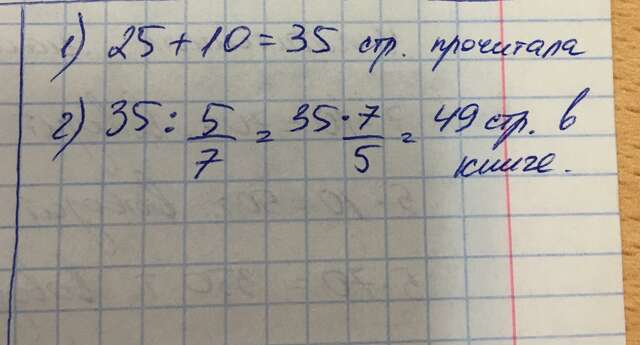 1) 25 + 10 = 35 стр. прочитала
2) 35 : 5/7 = 35·7/5 = 49 стр. в
книге.